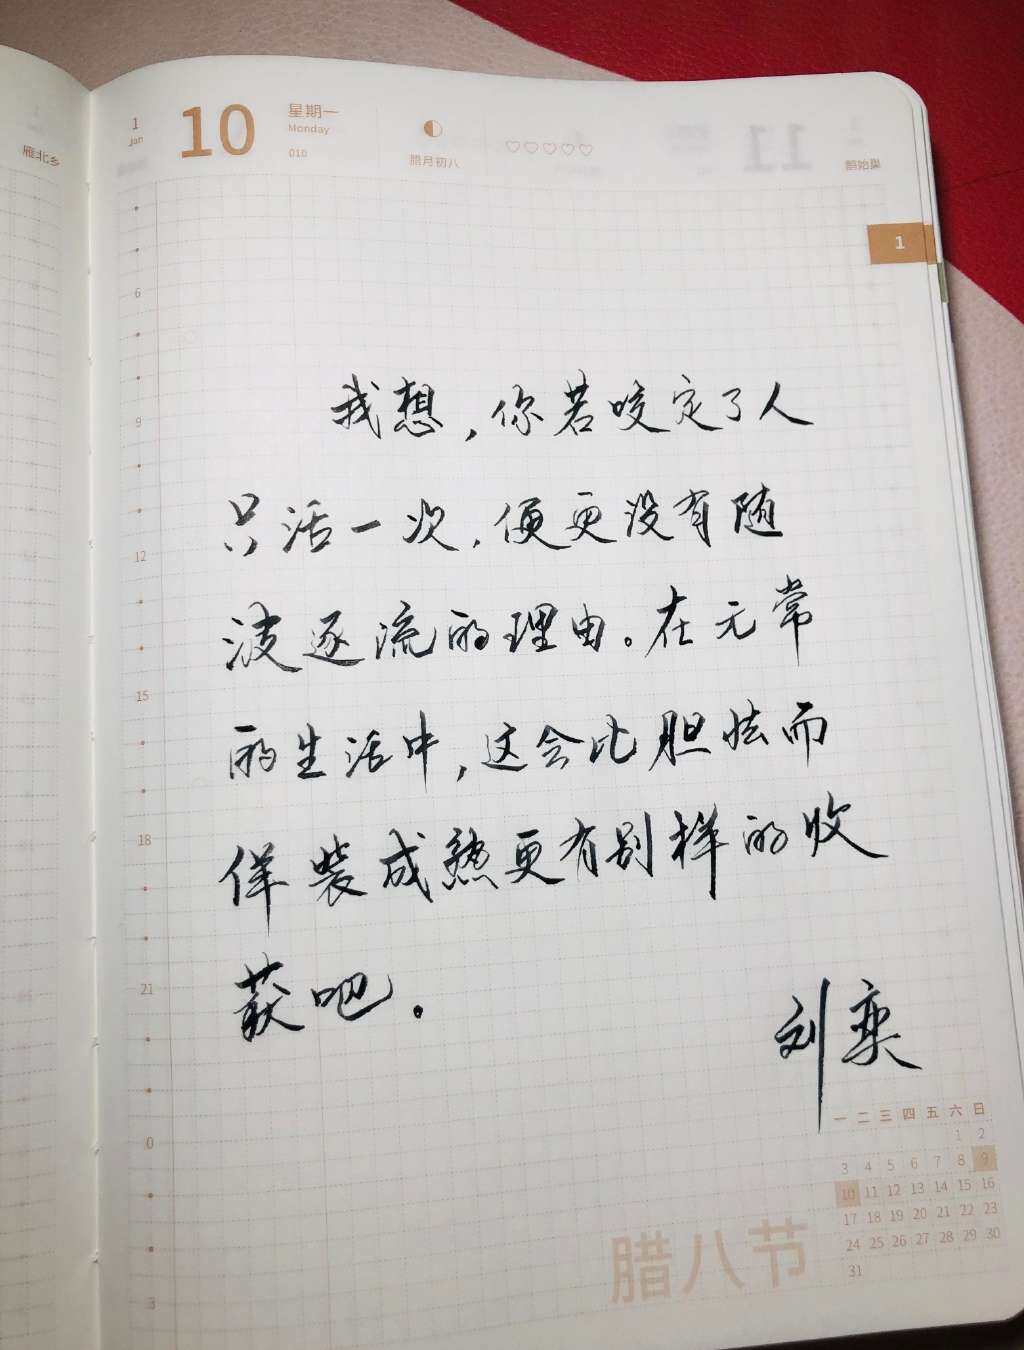 雁北乡
1
Jan
10
星期一
Monday
010
腊月初八
1
6
9
12
15
18
21
0
3
我想，你若咬定了人
只活一次，便更没有随
波逐流的理由。在无常
的生活中，这会比胆怯而
佯装成熟更有别样的收
获吧。
刘奕
一 二 三 四 五 六 日
1 2
3 4 5 6 7 8 9
10 11 12 13 14 15 16
17 18 19 20 21 22 23
24 25 26 27 28 29 30
31
腊八节